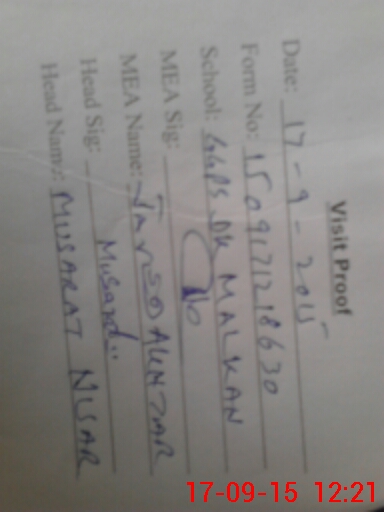 Visit Proof
Date: 17-9-2015
Form No: 1509171218630
School: GGPS DK MALKAN
MEA Sig:
MEA Name: AKHTAR
Head Sig: Musarat
Head Name: MUSARAT NISAR
17-09-15 12:21